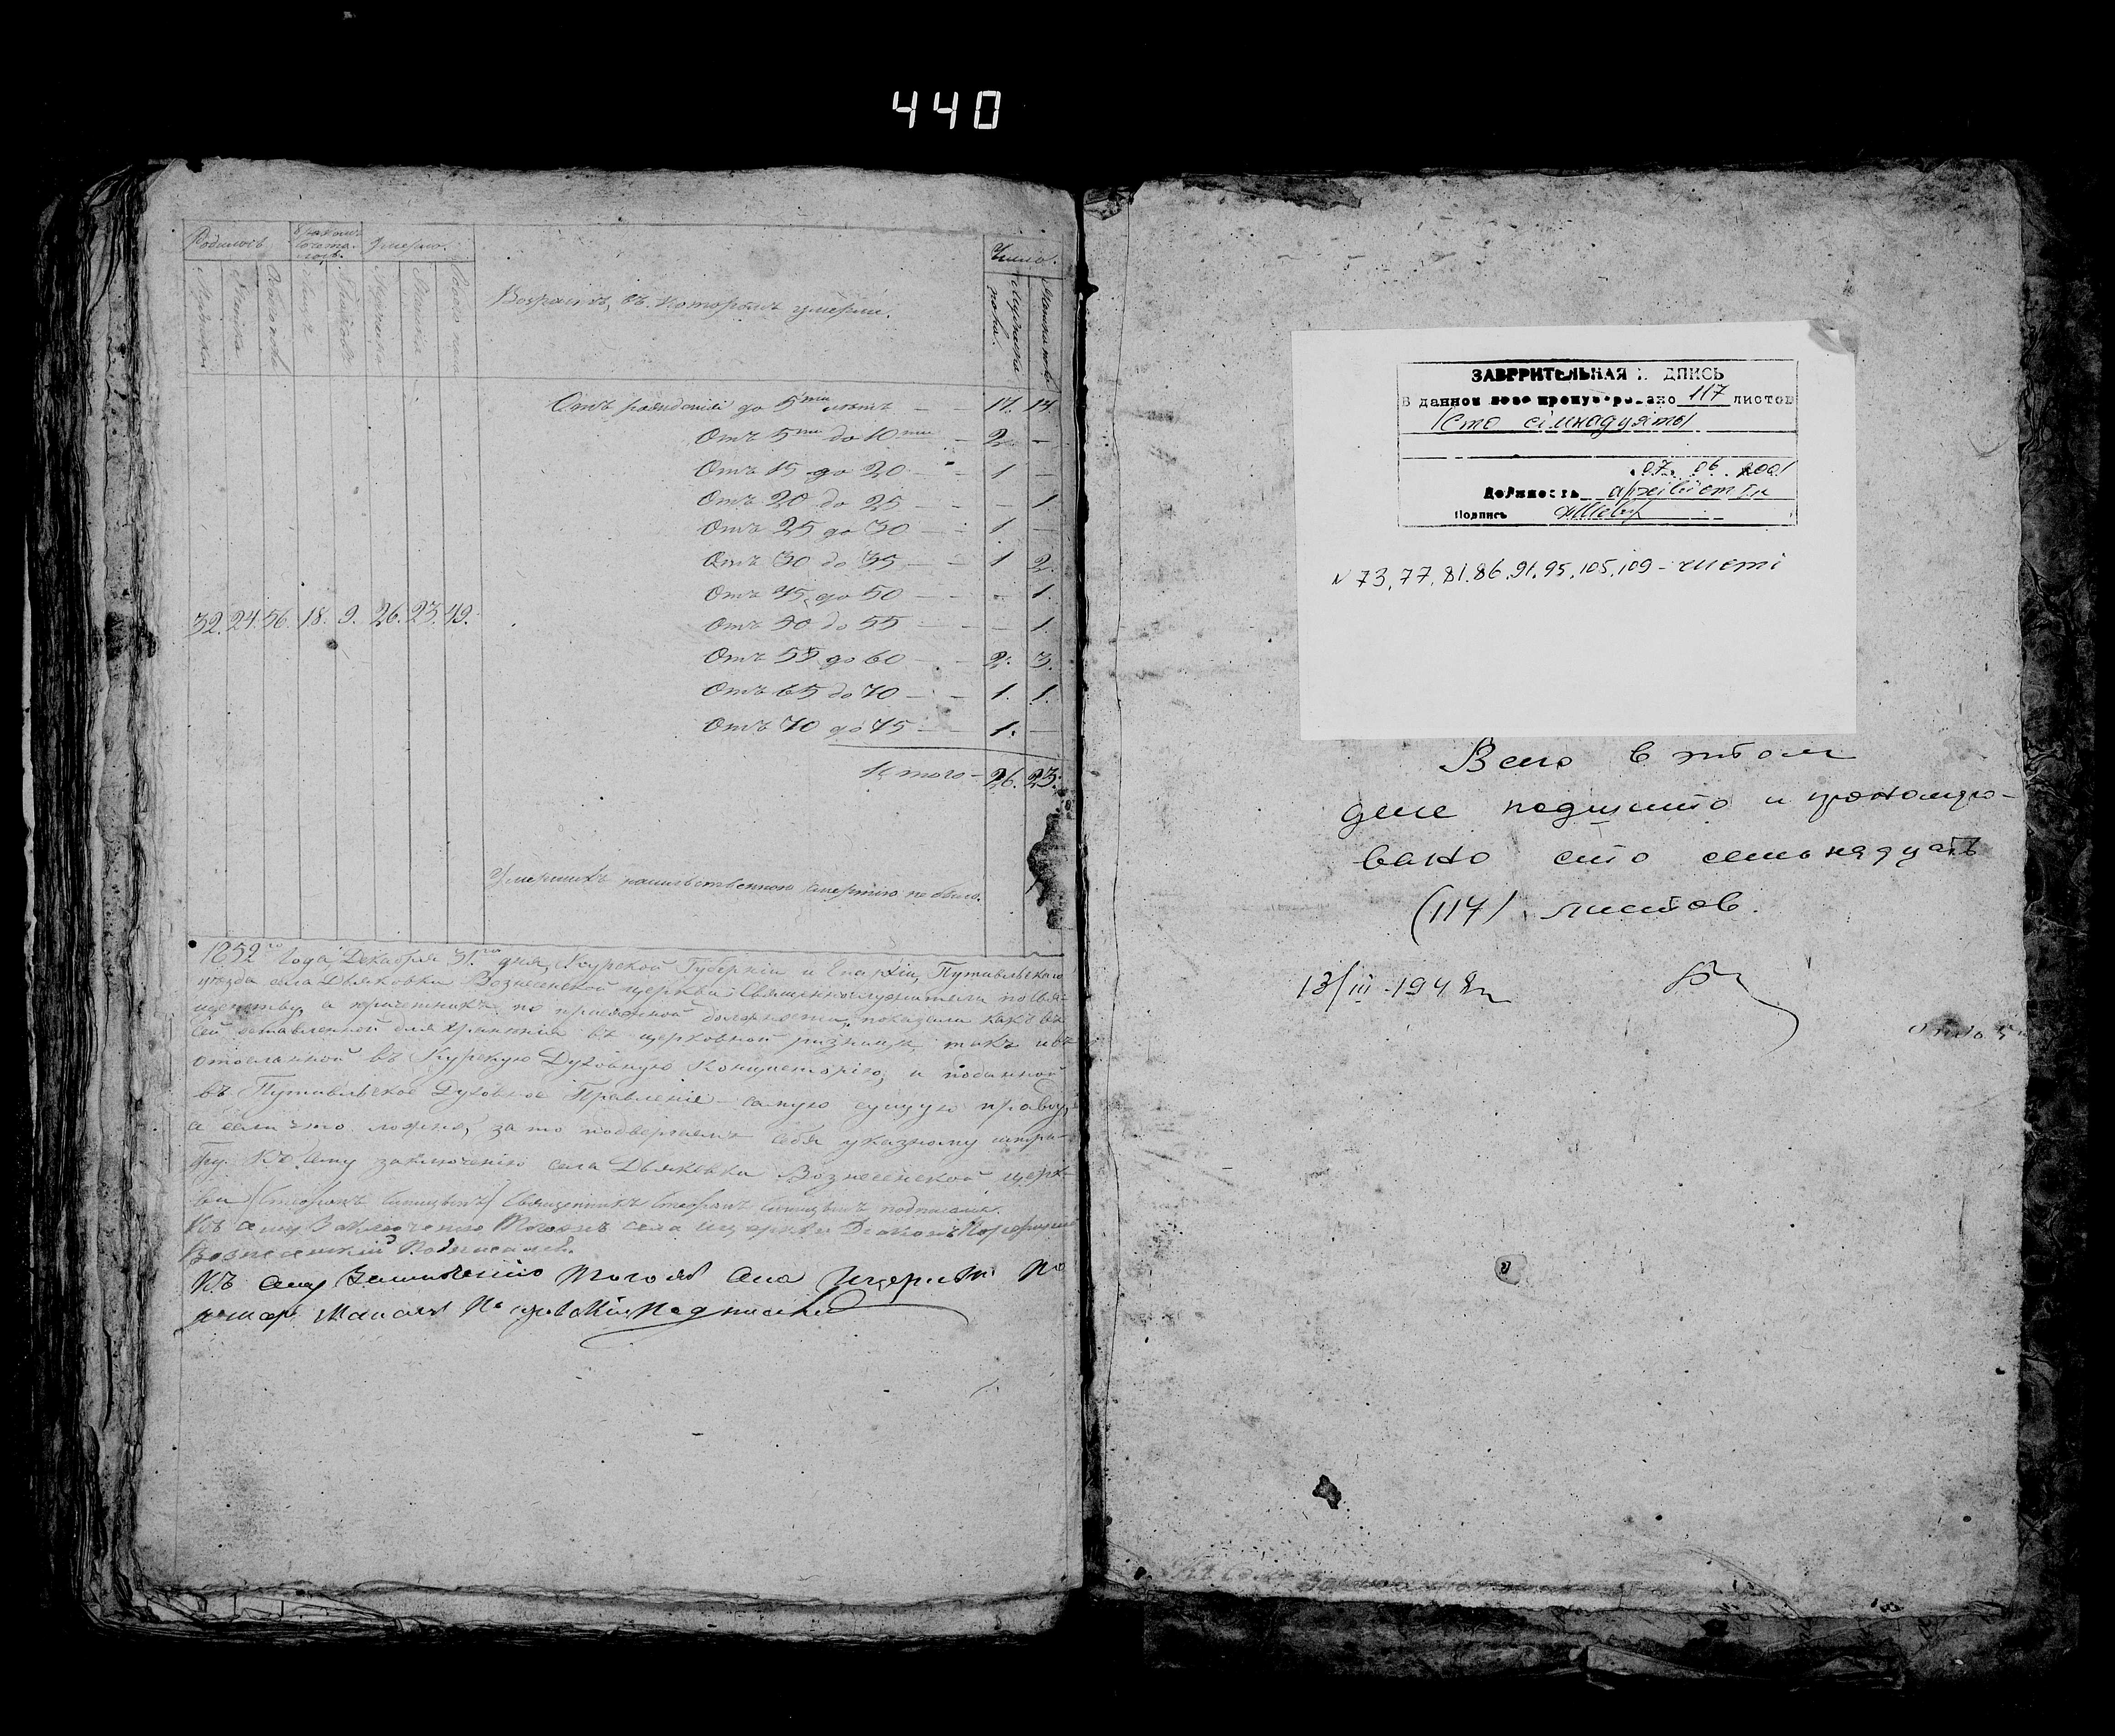 440
Родилось Бракомъ сочеталось. Умерло.
Число.
Мужеска Женска Обоего пола Лицъ Мужеска Женска Обоего пола
Возрастъ, въ которомъ умерли.
Мужеска пола. Женска пола
Отъ рожденія до 5ти лѣтъ — — 17. 14.
Отъ 5ти до 10ти — 2. —
Отъ 15 до 20 — — 1 —
Отъ 20 до 25 — — — 1.
Отъ 25 до 30 — — 1. —
Отъ 30 до 35 — — 1 2.
Отъ 45 до 50 — — - 1.
32. 24. 56. 18. 9. 26. 23. 49.
Отъ 50 до 55 — — — 1.
Отъ 55 до 60 — — 2. 3.
Отъ 65 до 70 — — 1. 1.
Отъ 70 до 75 — — 1. —
Итого — 26. 23.
Умершихъ насильственною смертію не было.
1852го Года, Декабря 31го дня, Курской Губерніи и Епархіи, Путивльскаго
уѣзда села Дьяковки Вознесенской церкви Священнослужители по свя-
щенству, а причетникъ по присяжной должности, показали какъ въ
сей оставленной для храненія въ церковной ризницѣ такъ и въ
отосланной въ Курскую Духовную Консисторію, и поданной
въ Путивльское Духовное Правленіе самую сущую правду,
а если что ложно, за то подвергаемъ себя указному штра-
фу. Къ сему заключенію села Дьяковки Вознесенской церк-
ви Священникъ подписался.
Къ сему Заключению Тогожъ села и церкви Диаконъ
Вознесенский Подписался.
Къ сему Заключению Тогожъ села Ицеркви По
номар Подписался
ЗАВЕРИТЕЛЬНАЯ ДПИСЬ
В данном деле пронумеровано 117 листов
(сто сімнадцять)
07. 06. 2001
Должность архівіст Iк
Подпись
N 73, 77, 81. 86. 91. 95. 105. 109 - чисті
Всего в этом
деле подшито и пронумеро-
вано сто семьнадцать
(117) листов.
13/III-1948г